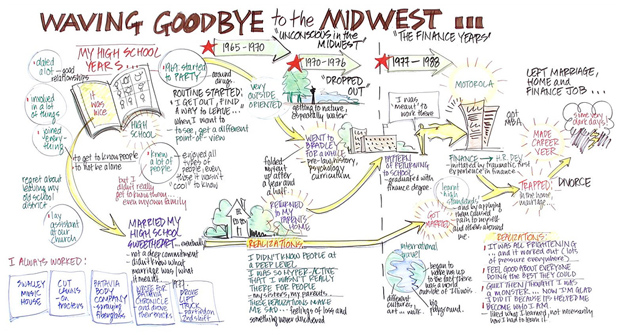 WAVING GOODBYE to the MIDWEST ...
MY HIGH SCHOOL
YEARS...
dated
a lot — good
relationships
involved
in a lot
of things
joined
everything
it was
nice
HIGH
SCHOOL
to get to know people
to not be alone
regret about
leaving my
old school
district
lay
assistant
at our
church
I ALWAYS WORKED:
SWALLEY
MUSIC
HOUSE
CUT
LAWNS
on
tractors
BATAVIA
BODY
COMPANY
spraying
fiberglass
CHRONICLE
and drove
their trucks
1964: started
to PARTY
ROUTINE STARTED:
"I GET OUT, FIND
A WAY TO LEAVE..."
when I want to
to see, get a different
point-of-view
knew
a lot of
people
enjoyed all
types of
people, even
those it wasn't
"cool" to know
but I didn't
really get
to know my
own family
MARRIED MY
HIGH SCHOOL
SWEETHEART...
not a deep commitment
didn't know what
marriage was / what
it meant
1965 - 1970
"UNCONSCIOUS in the
MIDWEST"
very
OUTSIDE
ORIENTED
1970 - 1976
"DROPPED
OUT"
getting to nature,
especially water
WENT TO
BRADLEY
FOR A WHILE
pre-law, history,
psychology
curriculum
folded
myself up
after a year
and a half
RETURNED to
MY PARENTS
HOME
REALIZATIONS:
I DIDN'T KNOW PEOPLE
AT A DEEP LEVEL
I WAS SO HYPER-ACTIVE
THAT I WASN'T REALLY
THERE FOR PEOPLE
my sisters, my parents
THESE REALIZATIONS MAKE
ME SAD - feelings of loss and
something never anchored
"THE FINANCE YEARS"
1977 - 1988
I was
"meant" to
work there
MOTOROLA
PATTERN
OF RETURNING
TO SCHOOL
graduated with
finance degree
FINANCE
H.R. DEV.
initiated by traumatic first
experience in finance
got
MBA
MADE
CAREER
YEAR
learned
high
standards
and by applying
them caused
pain to myself
and others around
me
GOT
MARRIED
TRAPPED:
in the home,
marriage
DIVORCE
LEFT MARRIAGE,
HOME and
FINANCE JOB ...
some very
dark days!
international
travel
began to
wake me up
to the fact there
was a world
outside of Illinois
different
cultures,
art...
big
playground
REALIZATIONS:
IT WAS ALL FRIGHTENING
and it worked out (lots
of pressure everywhere)
FEEL GOOD ABOUT EVERYONE
DOING THE BEST THEY COULD
I WAS
A MONSTER ... NOW I'M GLAD
I DID IT BECAUSE IT'S HELPED ME
BECOME WHO I AM
liked why I learned, not necessarily
how I had to learn it